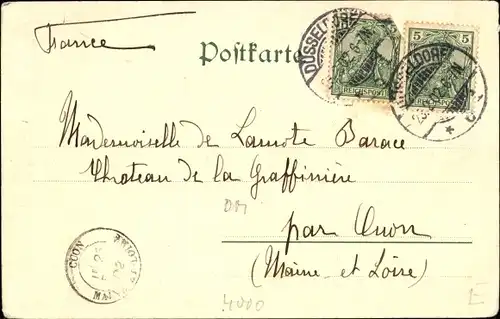 France
Postkarte
DÜSSELDORF
REICHSPOST
5
DÜSSELDORF
Mademoiselle de Lamote Barace
Chateau de la Graffinière
par Cuon
(Maine et Loire)
CUON
4000